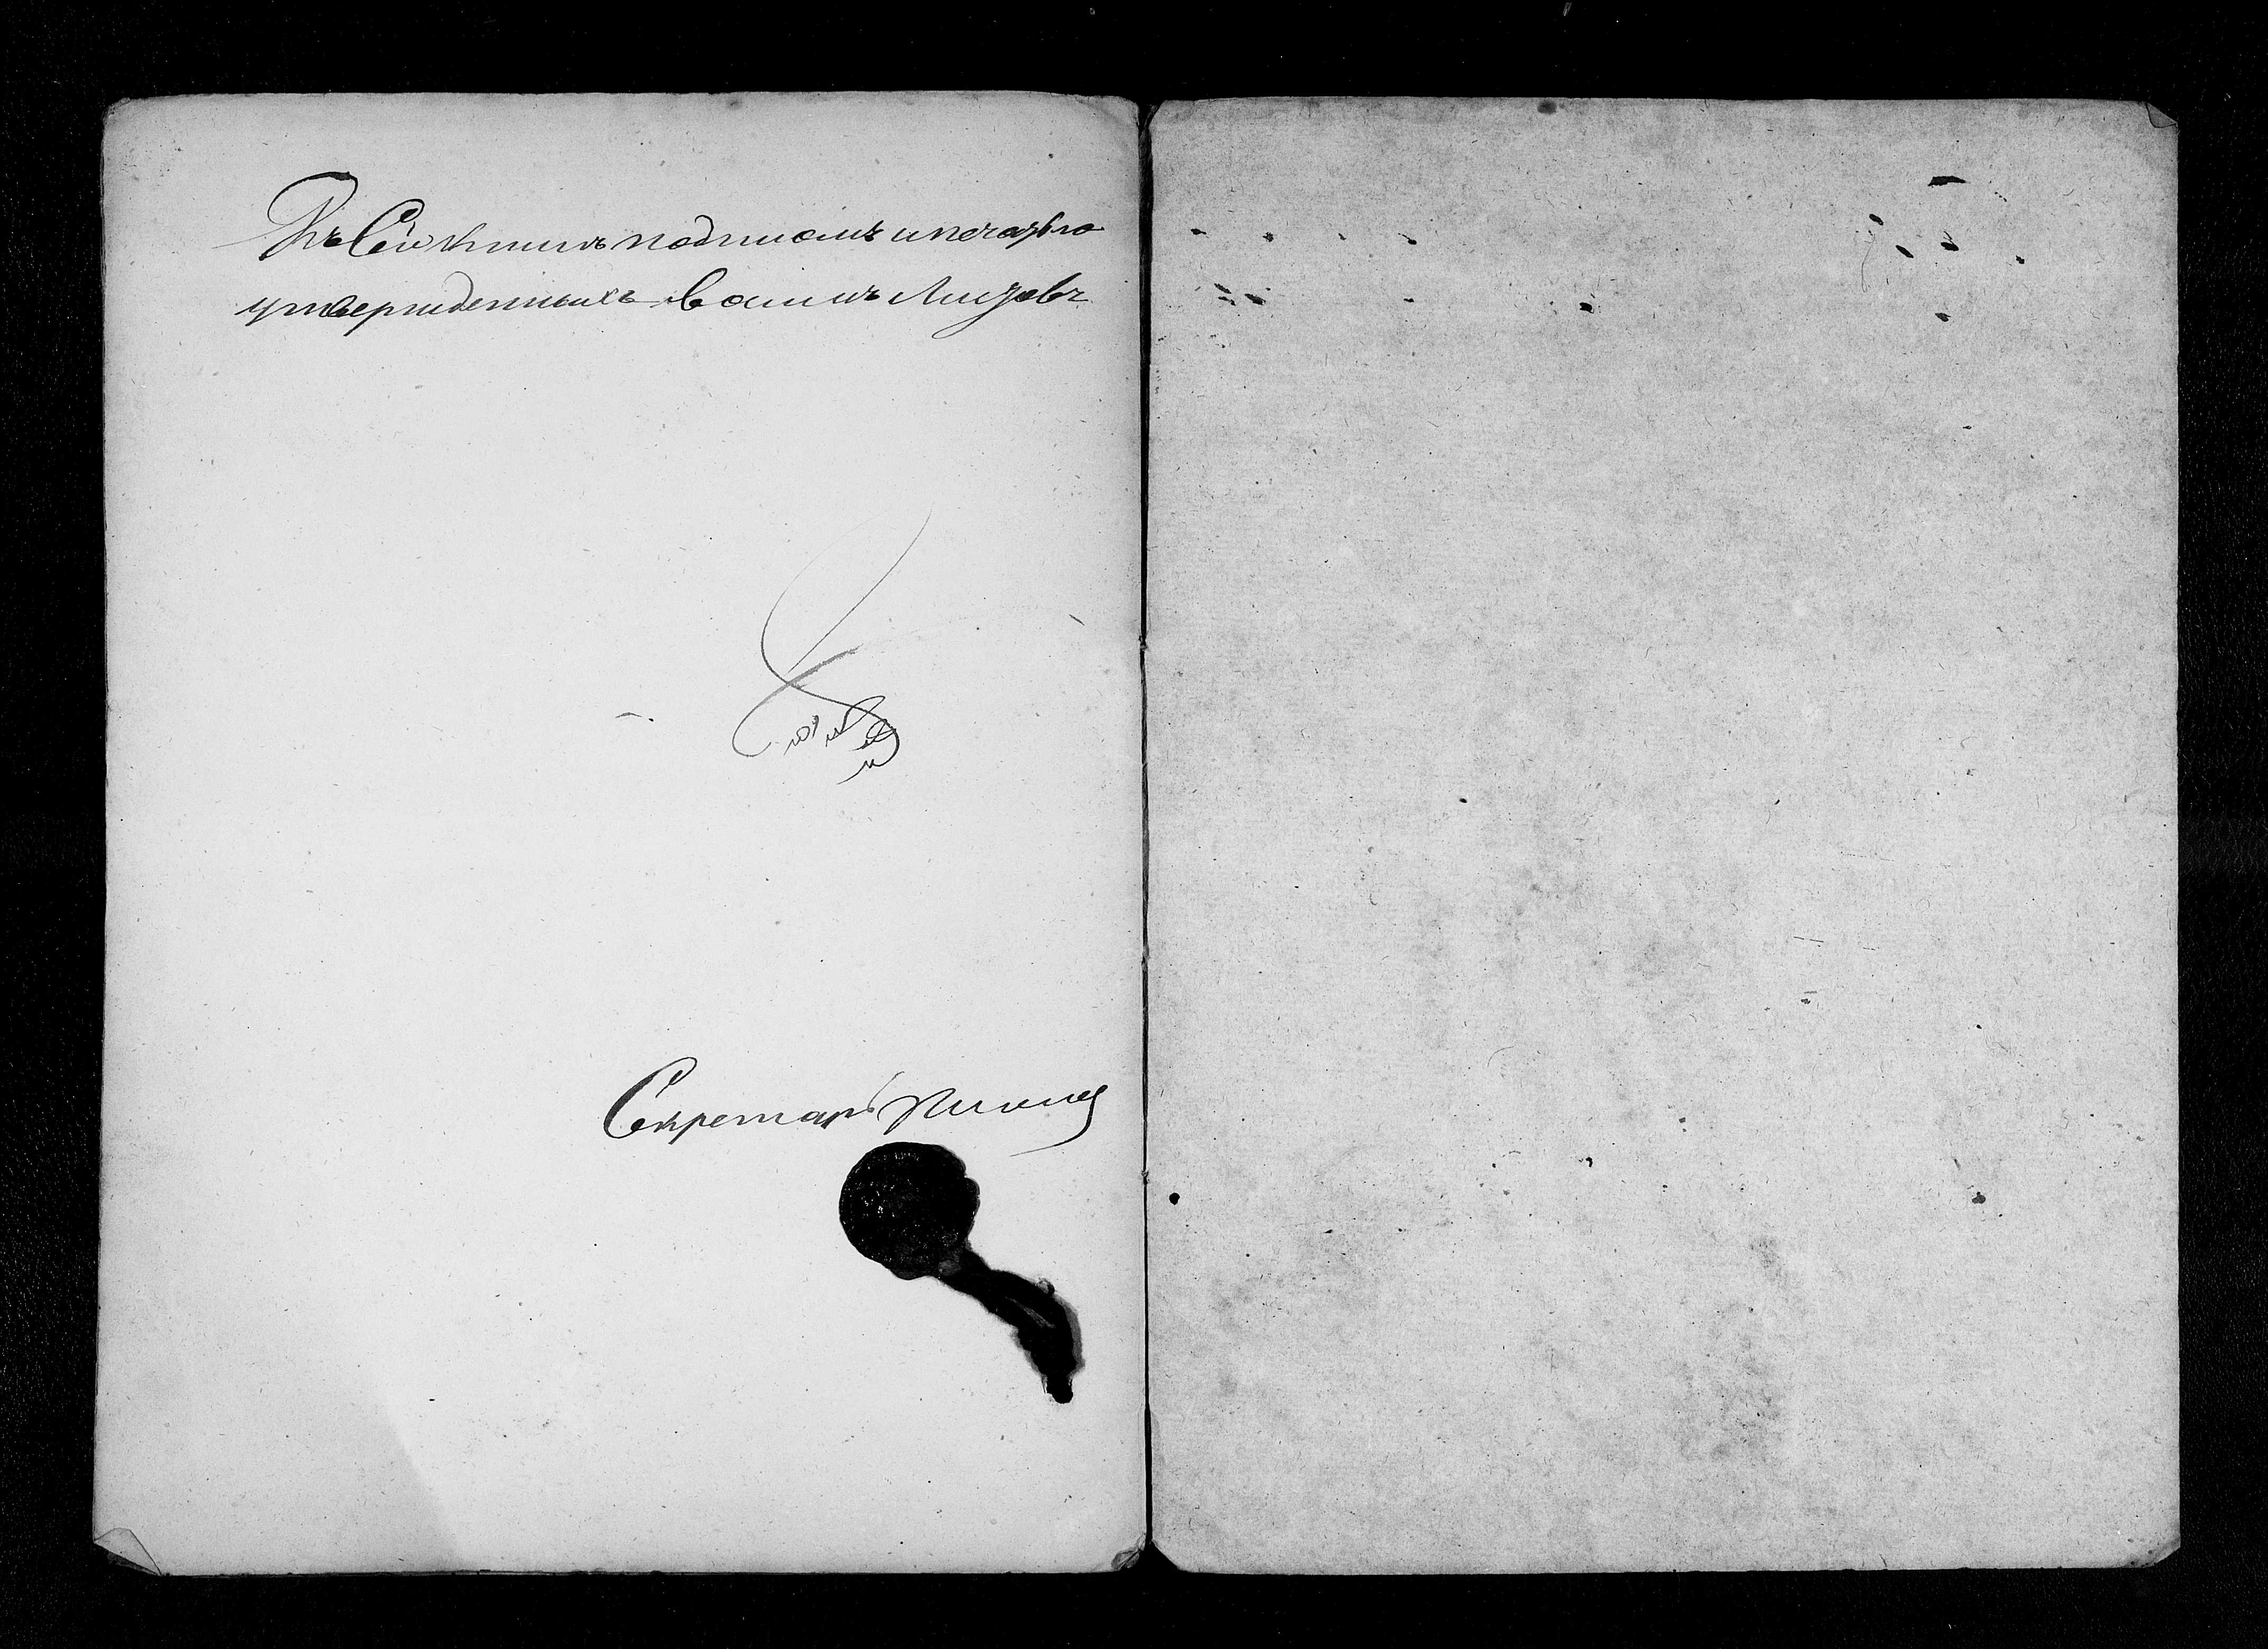 Въ Сей Книгѣ подписомъ и печатью
утвержденныхъ восемь Листовъ
Секретарь